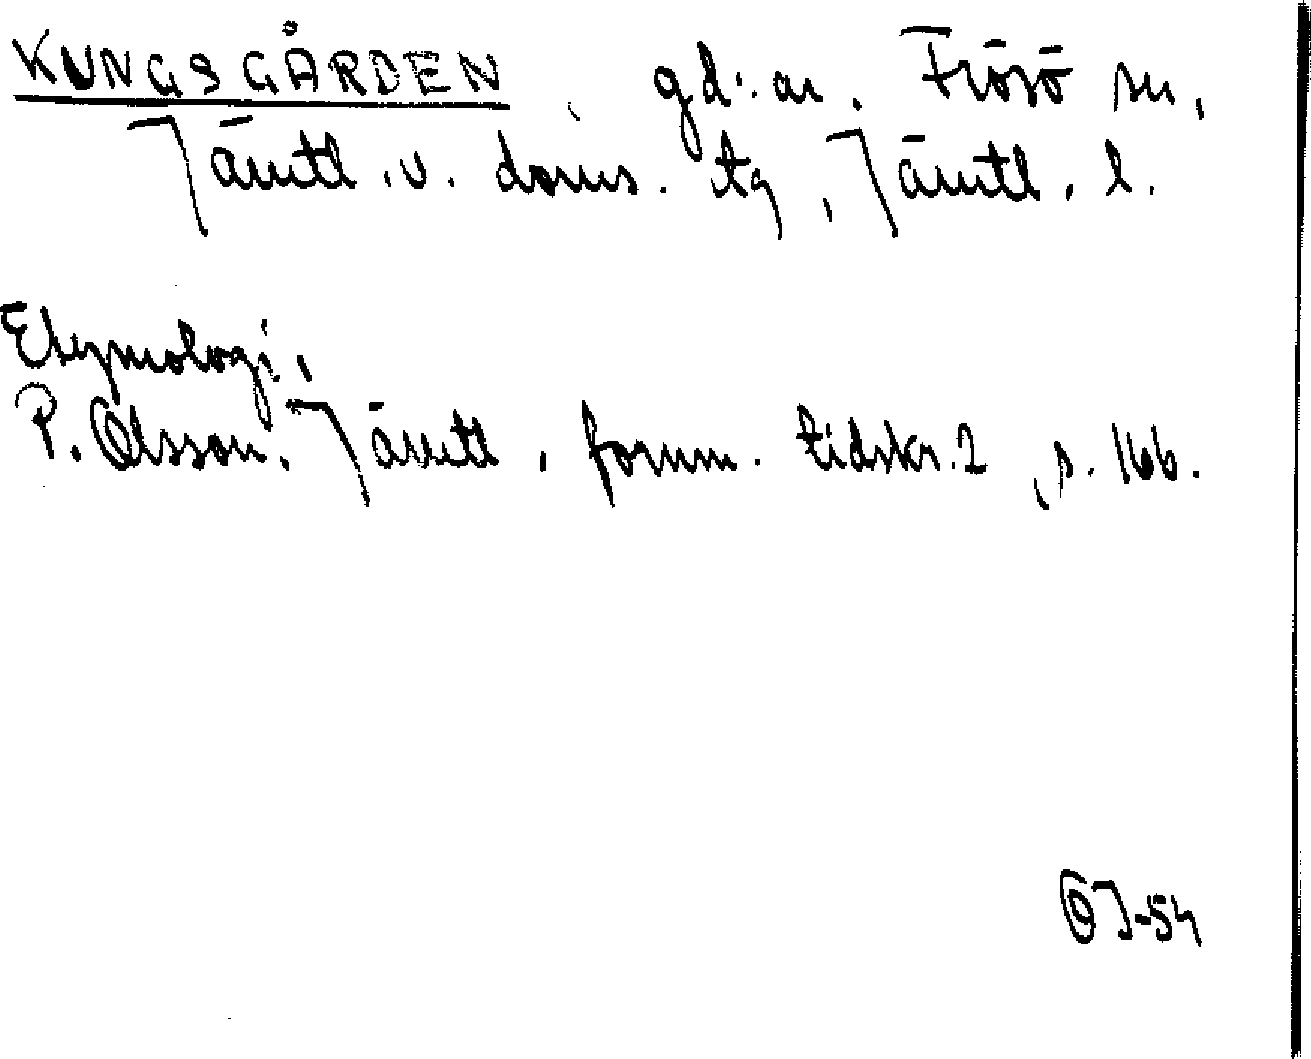 KUNGSGÅRDEN, gd:ar. Frösö sn,
Jämtl. v. doms. tg, Jämtl. l.
Etymologi,
P. Olsson. Jämtl. fornm. tidskr. 2, s. 166.
OJ-54